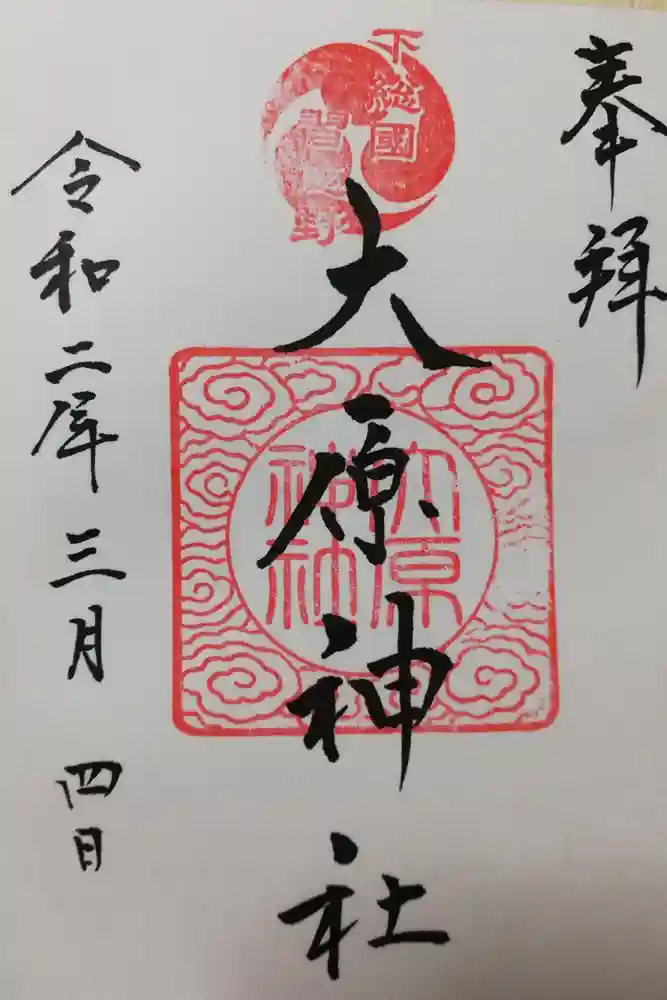 奉拝
下総國
習志野
大原神社
大原
神社
令和二年三月四日